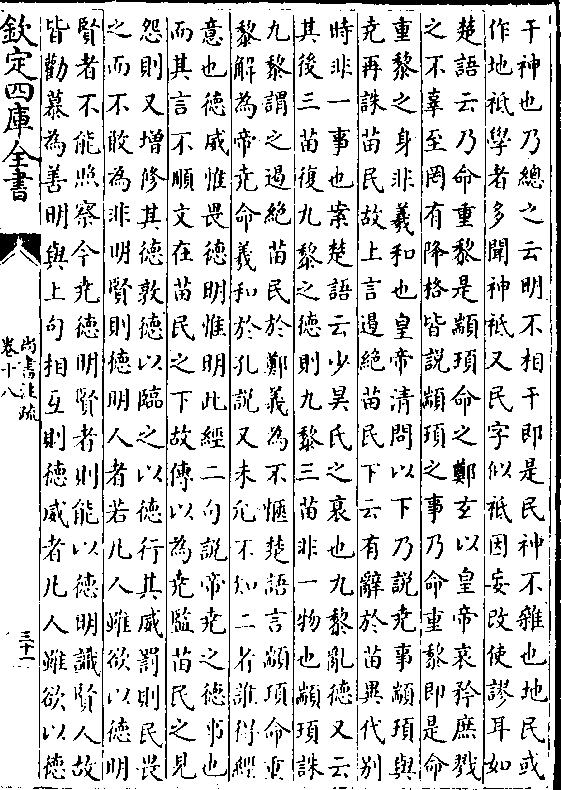 干神也乃總之云明不相干即是民神不雜也地民或
作地祗學者多聞神祗又民字似祗因妄改使謬耳如
楚語云乃命重黎是顓頊命之鄭玄以皇帝哀矜庶戮
之不辜至罔有降格皆説顓頊之事乃命重黎即是命
重黎之身非羲和也皇帝清問以下乃説堯事顓頊與
堯再誅苗民故上言遏絶苗民下云有辭於苗異代別
時非一事也案楚語云少昊氏之衰也九黎亂德又云
其後三苗復九黎之德則九黎三苗非一物也顓頊誅
九黎謂之遏絶苗民於鄭義為不愜楚語言顓頊命重
黎解為帝堯命羲和於孔説又未允不知二者誰得經
意也德威惟畏德明惟明此經二句説帝堯之德事也
而其言不順文在苗民之下故傳以為堯監苗民之見
怨則又增修其德敦德以臨之以德行其威罰則民畏
之而不敢為非明賢則德明人者若凡人雖欲以德明
賢者不能照察今堯德明賢者則能以德明識賢人故
皆勸慕為善明與上句相互則德威者凡人雖欲以德
欽定四庫全書
尚書注疏
卷十八
三十一